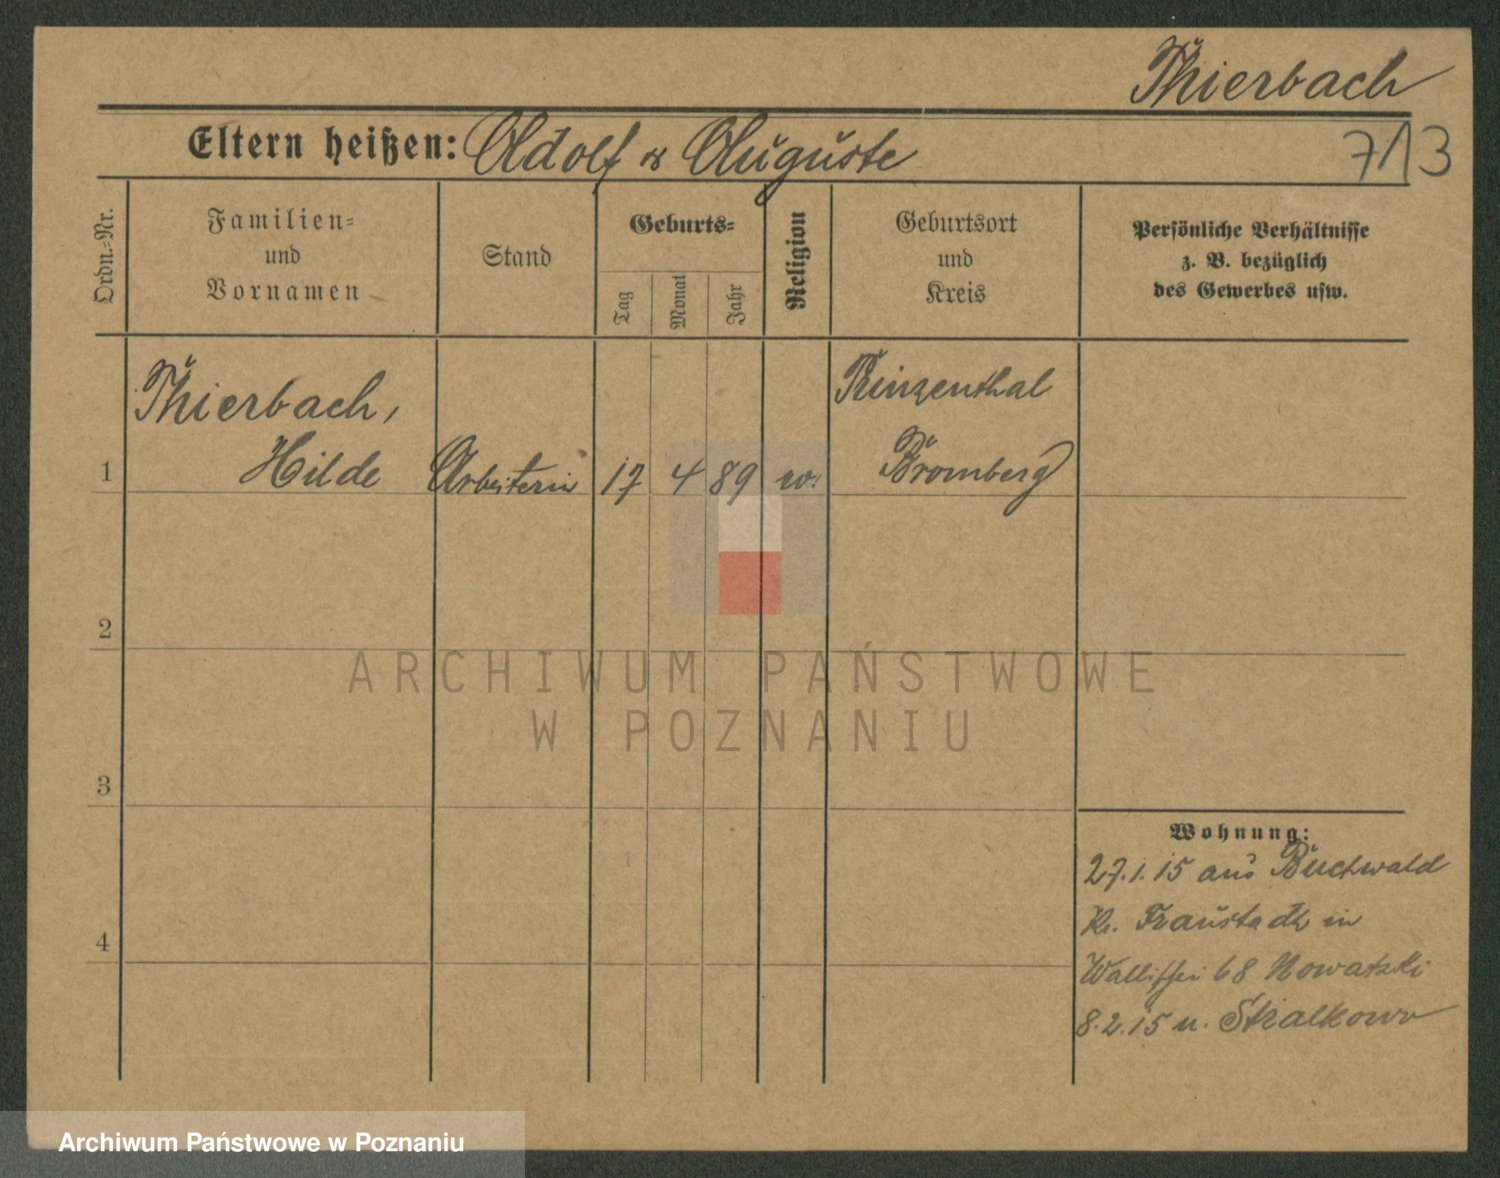 Thierbach
Eltern heißen: Adolf & Auguste
713
Ordn.-Nr.
Familien-
und
Vornamen
Stand
Geburts-
Tag
Monat
Jahr
Religion
Geburtsort
und
Kreis
Persönliche Verhältnisse
z. B. bezüglich
des Gewerbes usw.
Thierbach,
Prinzenthal
1 Hilde Arbeiterin 17 4 89 Bromberg
2
3
4
Wohnung:
27.1.15 aus Buchwald
Kr. Fraustadt in
Wallischei 68 Nowatzki
8.2.15 n. Stralkowo
ARCHIWUM PAŃSTWOWE
W POZNANIU
Archiwum Państwowe w Poznaniu